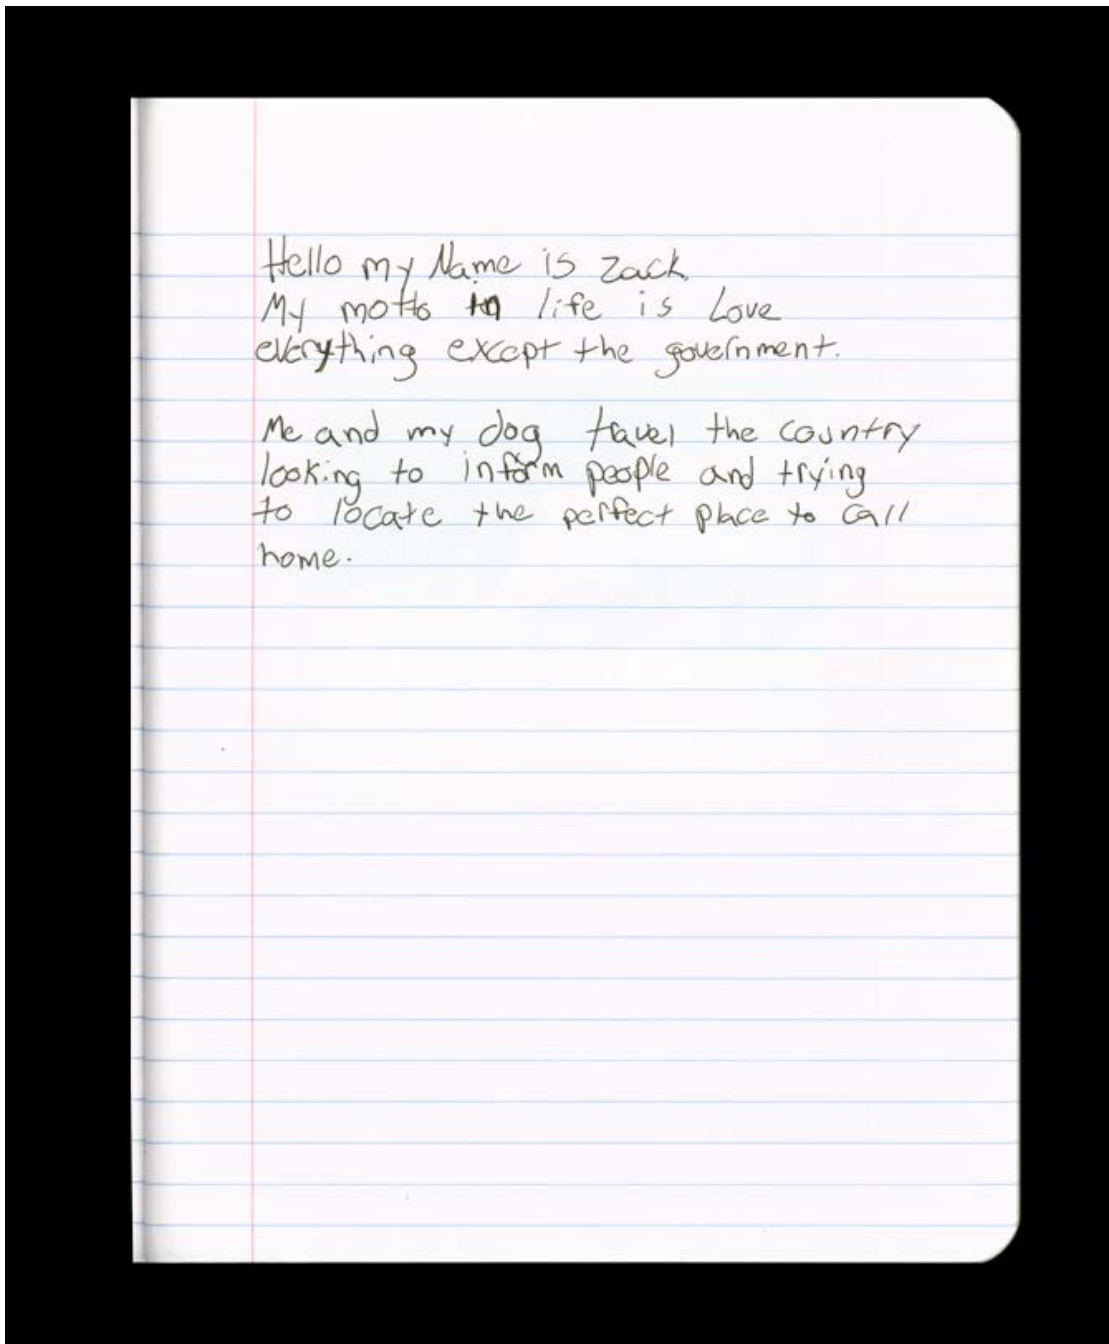 Hello my Name is Zack
My motto in life is Love
everything except the government.
Me and my dog tavel the country
looking to inform people and trying
to locate the perfect place to call
home.